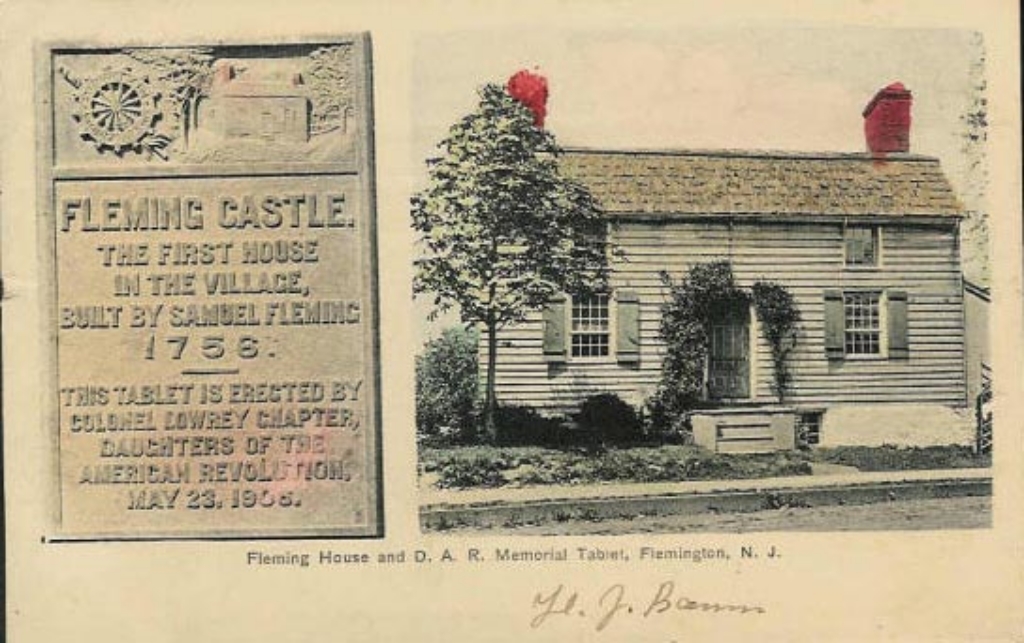 FLEMING CASTLE.
THE FIRST HOUSE
IN THE VILLAGE,
BUILT BY SAMUEL FLEMING
1756.
THIS TABLET IS ERECTED BY
COLONEL LOWREY CHAPTER,
DAUGHTERS OF THE
AMERICAN REVOLUTION,
MAY 23, 1906.
Fleming House and D. A. R. Memorial Tablet, Flemington, N. J.